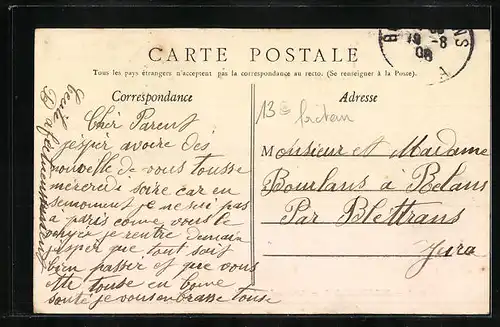 CARTE POSTALE
Tous les pays étrangers n'acceptent pas la correspondance au recto. (Se renseigner à la Poste).
Correspondance
Cher Parent
j'esper avoire des
nouvelle de vous tousse
mercredi soire car en
se moment je ne sui pas
à paris come vous le
voyée je rentre demain
j'esper que tout soit
bien passer et que vous
ete tousse en bone
santé je vous enbrasse touse
Adresse
13
Monsieur et Madame
Bourlans à Relans
Par Blettrans
Jura
19 - 8
08